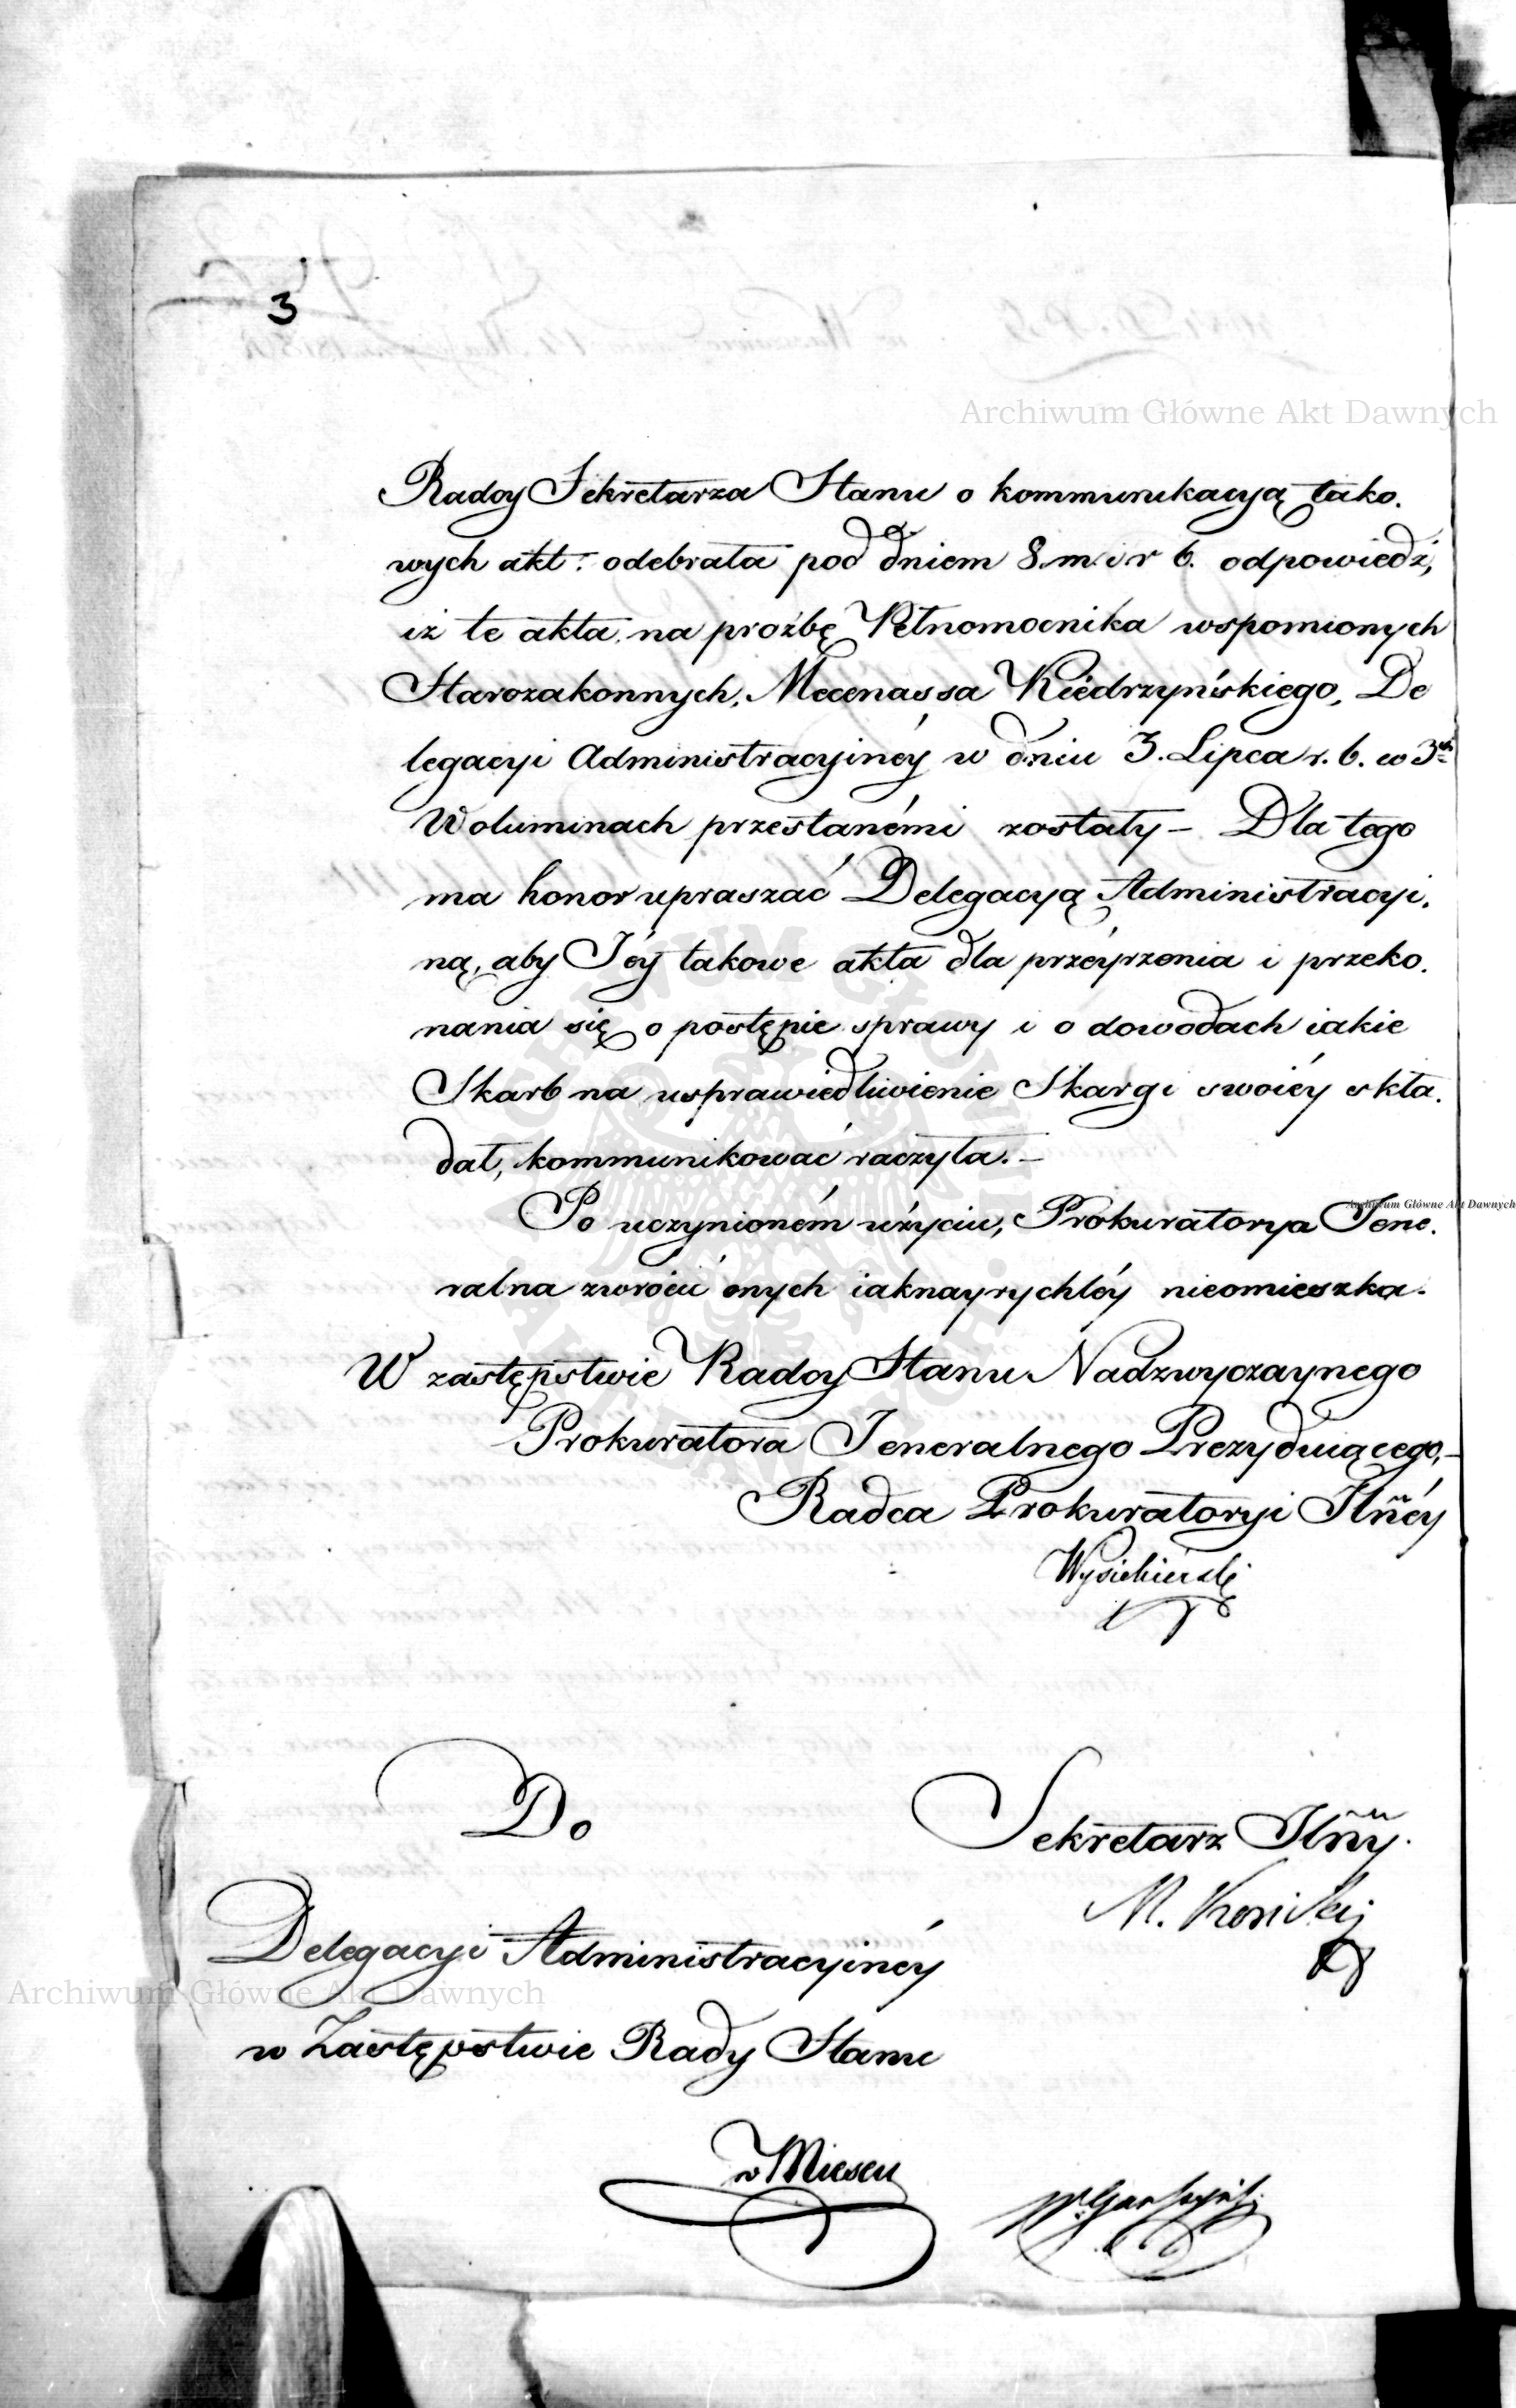 3
Archiwum Główne Akt Dawnych
Radcy Sekretarza Stanu o kommunikacyą tako.
wych akt: odebrała pod dniem 8. m. i r b. odpowiedź,
iż te akta, na prozbę Pełnomocnika wspomionych
Starozakonnych, Mecenassa Kiedrzyńskiego, De
legacyi Administracyinéy w dniu 3. Lipca r. b. w 3ch
Woluminach przesłanémi zostały – Dla tego
ma honor upraszać Delegacyą Administracyi.
ną, aby Jéy takowe akta dla przéyrzenia i przeko.
nania się o postępie sprawy i o dowodach iakie
Skarb na usprawiedliwienie Skargi swoiéy skła.
dał, kommunikować raczyła. –
Archiwum Główne Akt Dawnych
Po uczynioném użyciu, Prokuratorya Jene.
ralna zwrócić onych iaknayrychléy nieomieszka.
W zastępstwie Radcy Stanu Nadzwyczaynego
Prokuratora Jeneralnego Prezyduiącego, –
Radca Prokuratoryi Jlñéy
Do
Sekretarz Jlñy.
Delegacyi Administracyinéy
Archiwum Główne Akt Dawnych
w Zastępstwie Rady Stanu
w Miescu